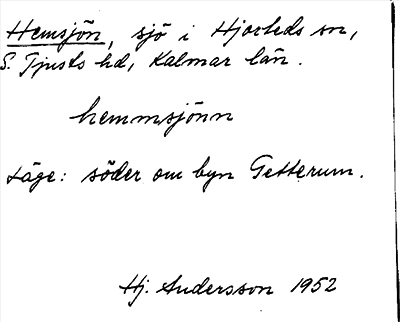 Hemsjön, sjö i Hjorteds sn,
S. Tjusts hd, Kalmar län.
hemmsjönn
Läge: söder om byn Getterum.
Hj. Andersson 1952